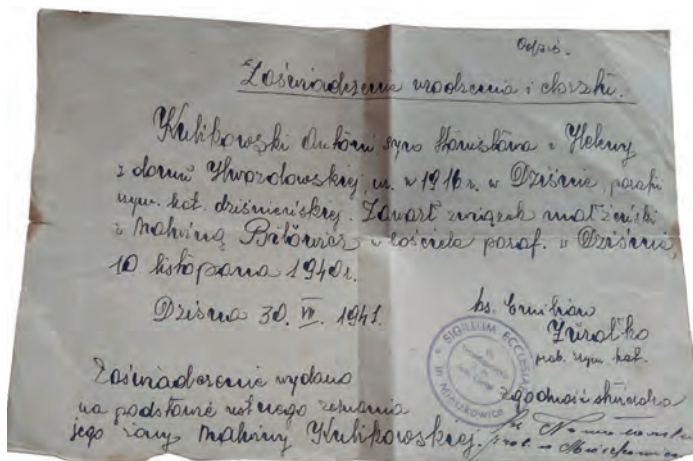 Odpis.
Zaświadczenie urodzenia i chrztu.
Kulikowski Antoni syn Stanisława i Heleny
z domu Hwozdowskiej, ur. w 1916 r. w Dziśnie, parafii
rzym. kat. dziśnieńskiej. Zawarł związek małżeński
z Malwiną Bitowicz w kościele paraf. w Dziśnie,
10 listopada 1940 r.
Dzisna 30. VII. 1941.
ks.
prob. rzym. kat.
SIGILLUM ECCLESIAE
in Mieszkowice
Zaświadczenie wydano
na podstawie ustnego zeznania
jego żony Malwiny Kulikowskiej.
Zgodność stwierdza